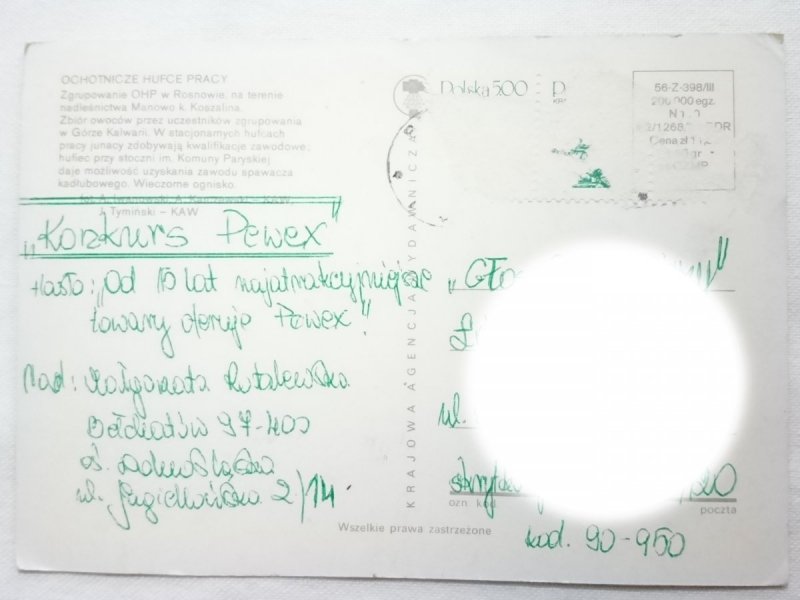 OCHOTNICZE HUFCE PRACY
Zgrupowanie OHP w Rosnowie, na terenie
nadleśnictwa Manowo k. Koszalina.
Zbiór owoców przez uczestników zgrupowania
w Górze Kalwarii. W stacjonarnych hufcach
pracy junacy zdobywają kwalifikacje zawodowe;
hufiec przy stoczni im. Komuny Paryskiej
daje możliwość uzyskania zawodu spawacza
kadłubowego. Wieczorne ognisko.
fot. A.
J. Tymiński – KAW
„Konkurs Pewex”
Hasło: „Od 15 lat najatrakcyjniejsze
towary oferuje Pewex”.
Nad: Małgorzata
Bełchatów 97-400
oś.
ul. Jagiellońska 2/14
KRAJOWA AGENCJA WYDAWNICZA
Polska 500
56-Z-398/III
200 000 egz.
ul.
ozn. kod.
poczta
kod. 90-950
Wszelkie prawa zastrzeżone